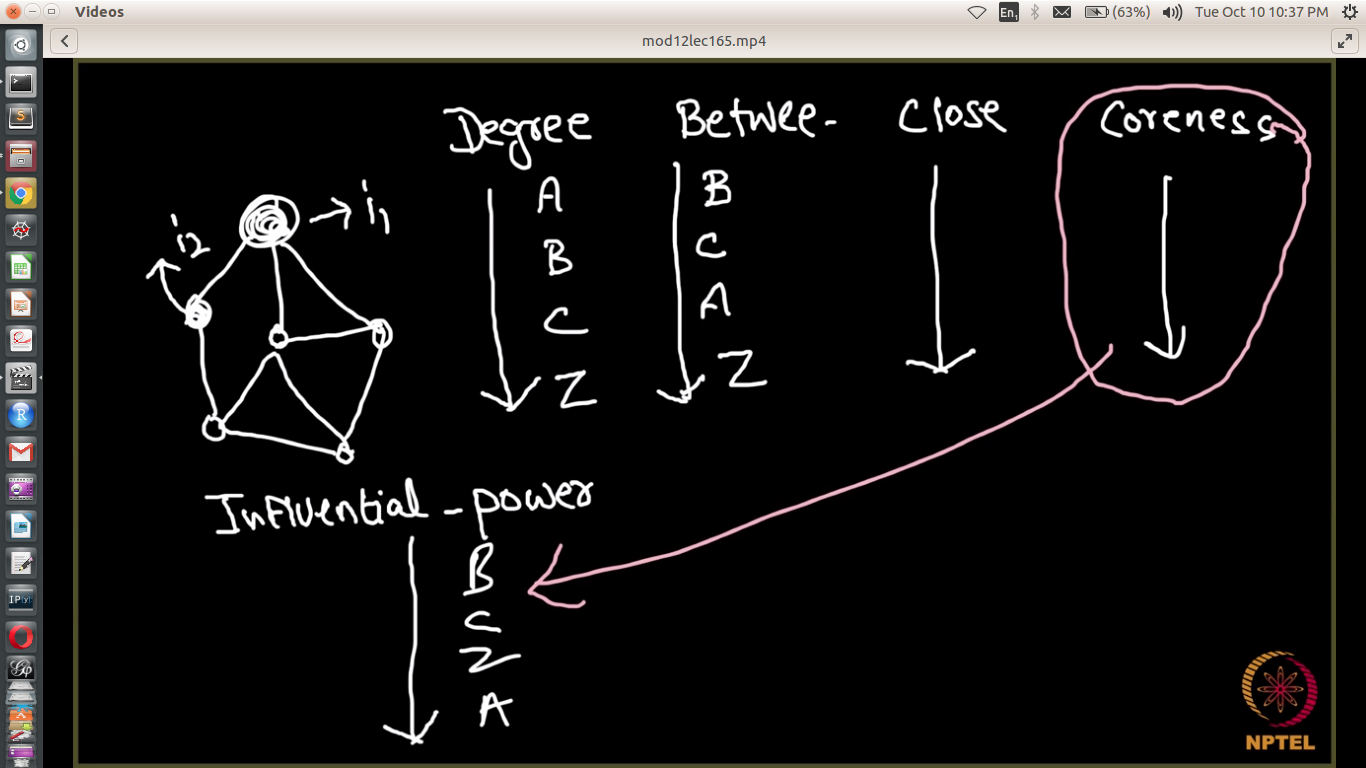 Videos
En1
(63%)
Tue Oct 10 10:37 PM
mod12lec165.mp4
Degree Betwee- Close Coreness
A B
B C
C A
Z Z
i1
i2
Influential - power
B
C
Z
A
NPTEL